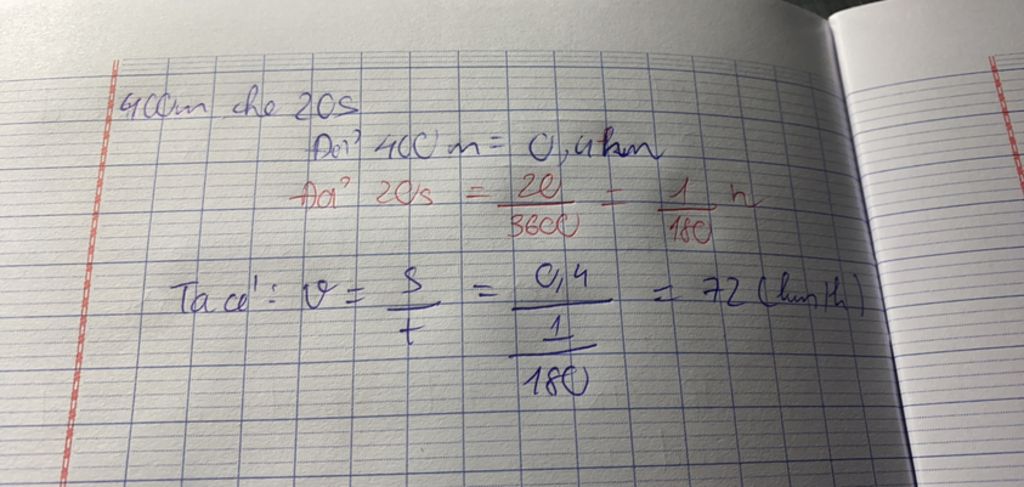 400m cho 20s
Đổi 400 m = 0,4 km
Đổi 20s = 20/3600 = 1/180 h
Ta có: v = s/t = 0,4/(1/180) = 72 (km/h)